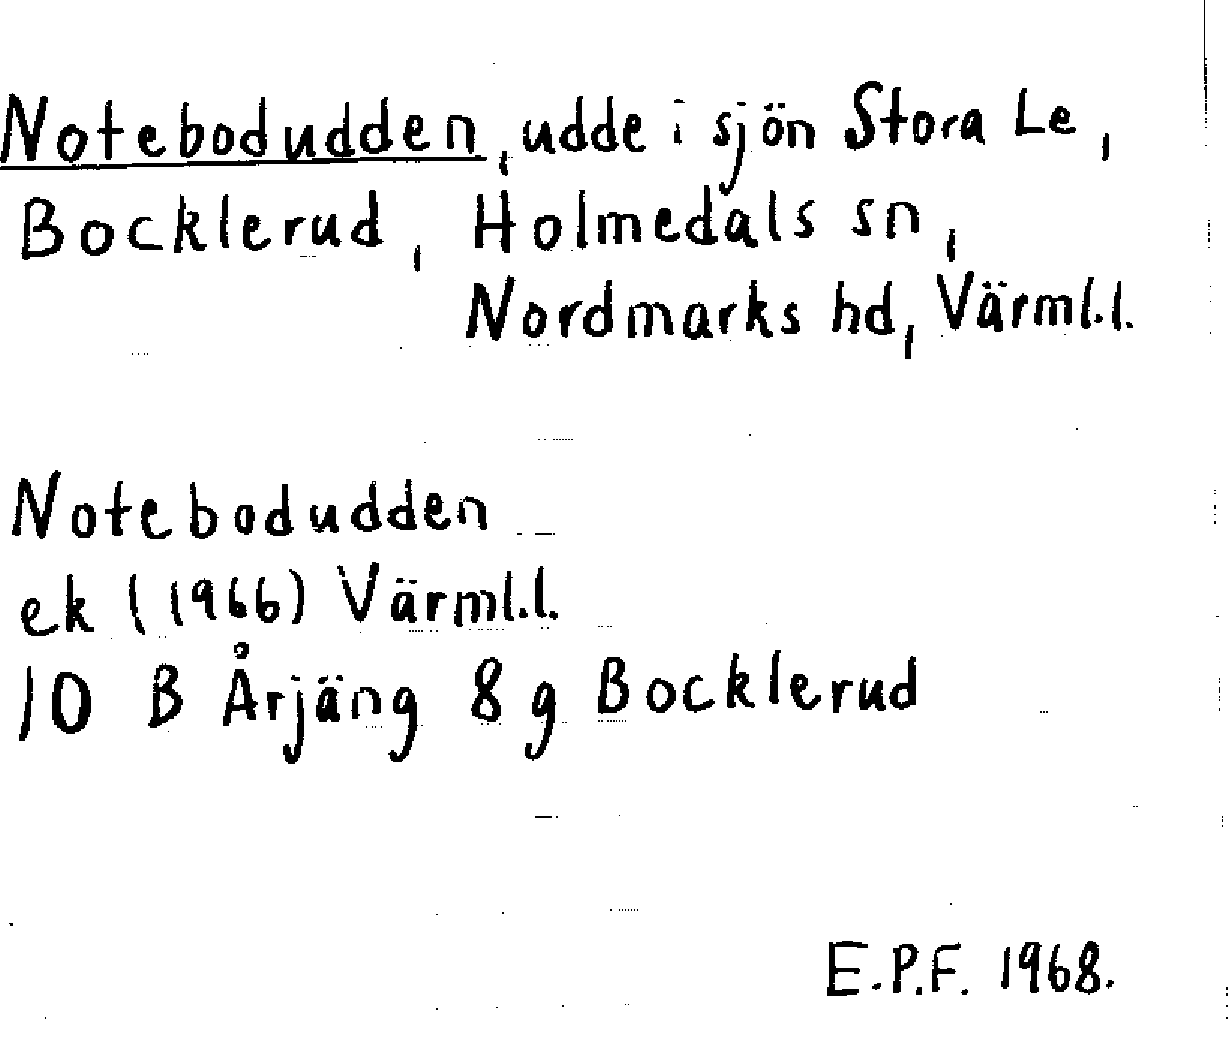 Notebodudden, udde i sjön Stora Le,
Bocklerud, Holmedals sn,
Nordmarks hd, Värml.l.
Notebodudden
ek (1966) Värml.l.
10 B Årjäng 8 g Bocklerud
E.P.F. 1968.